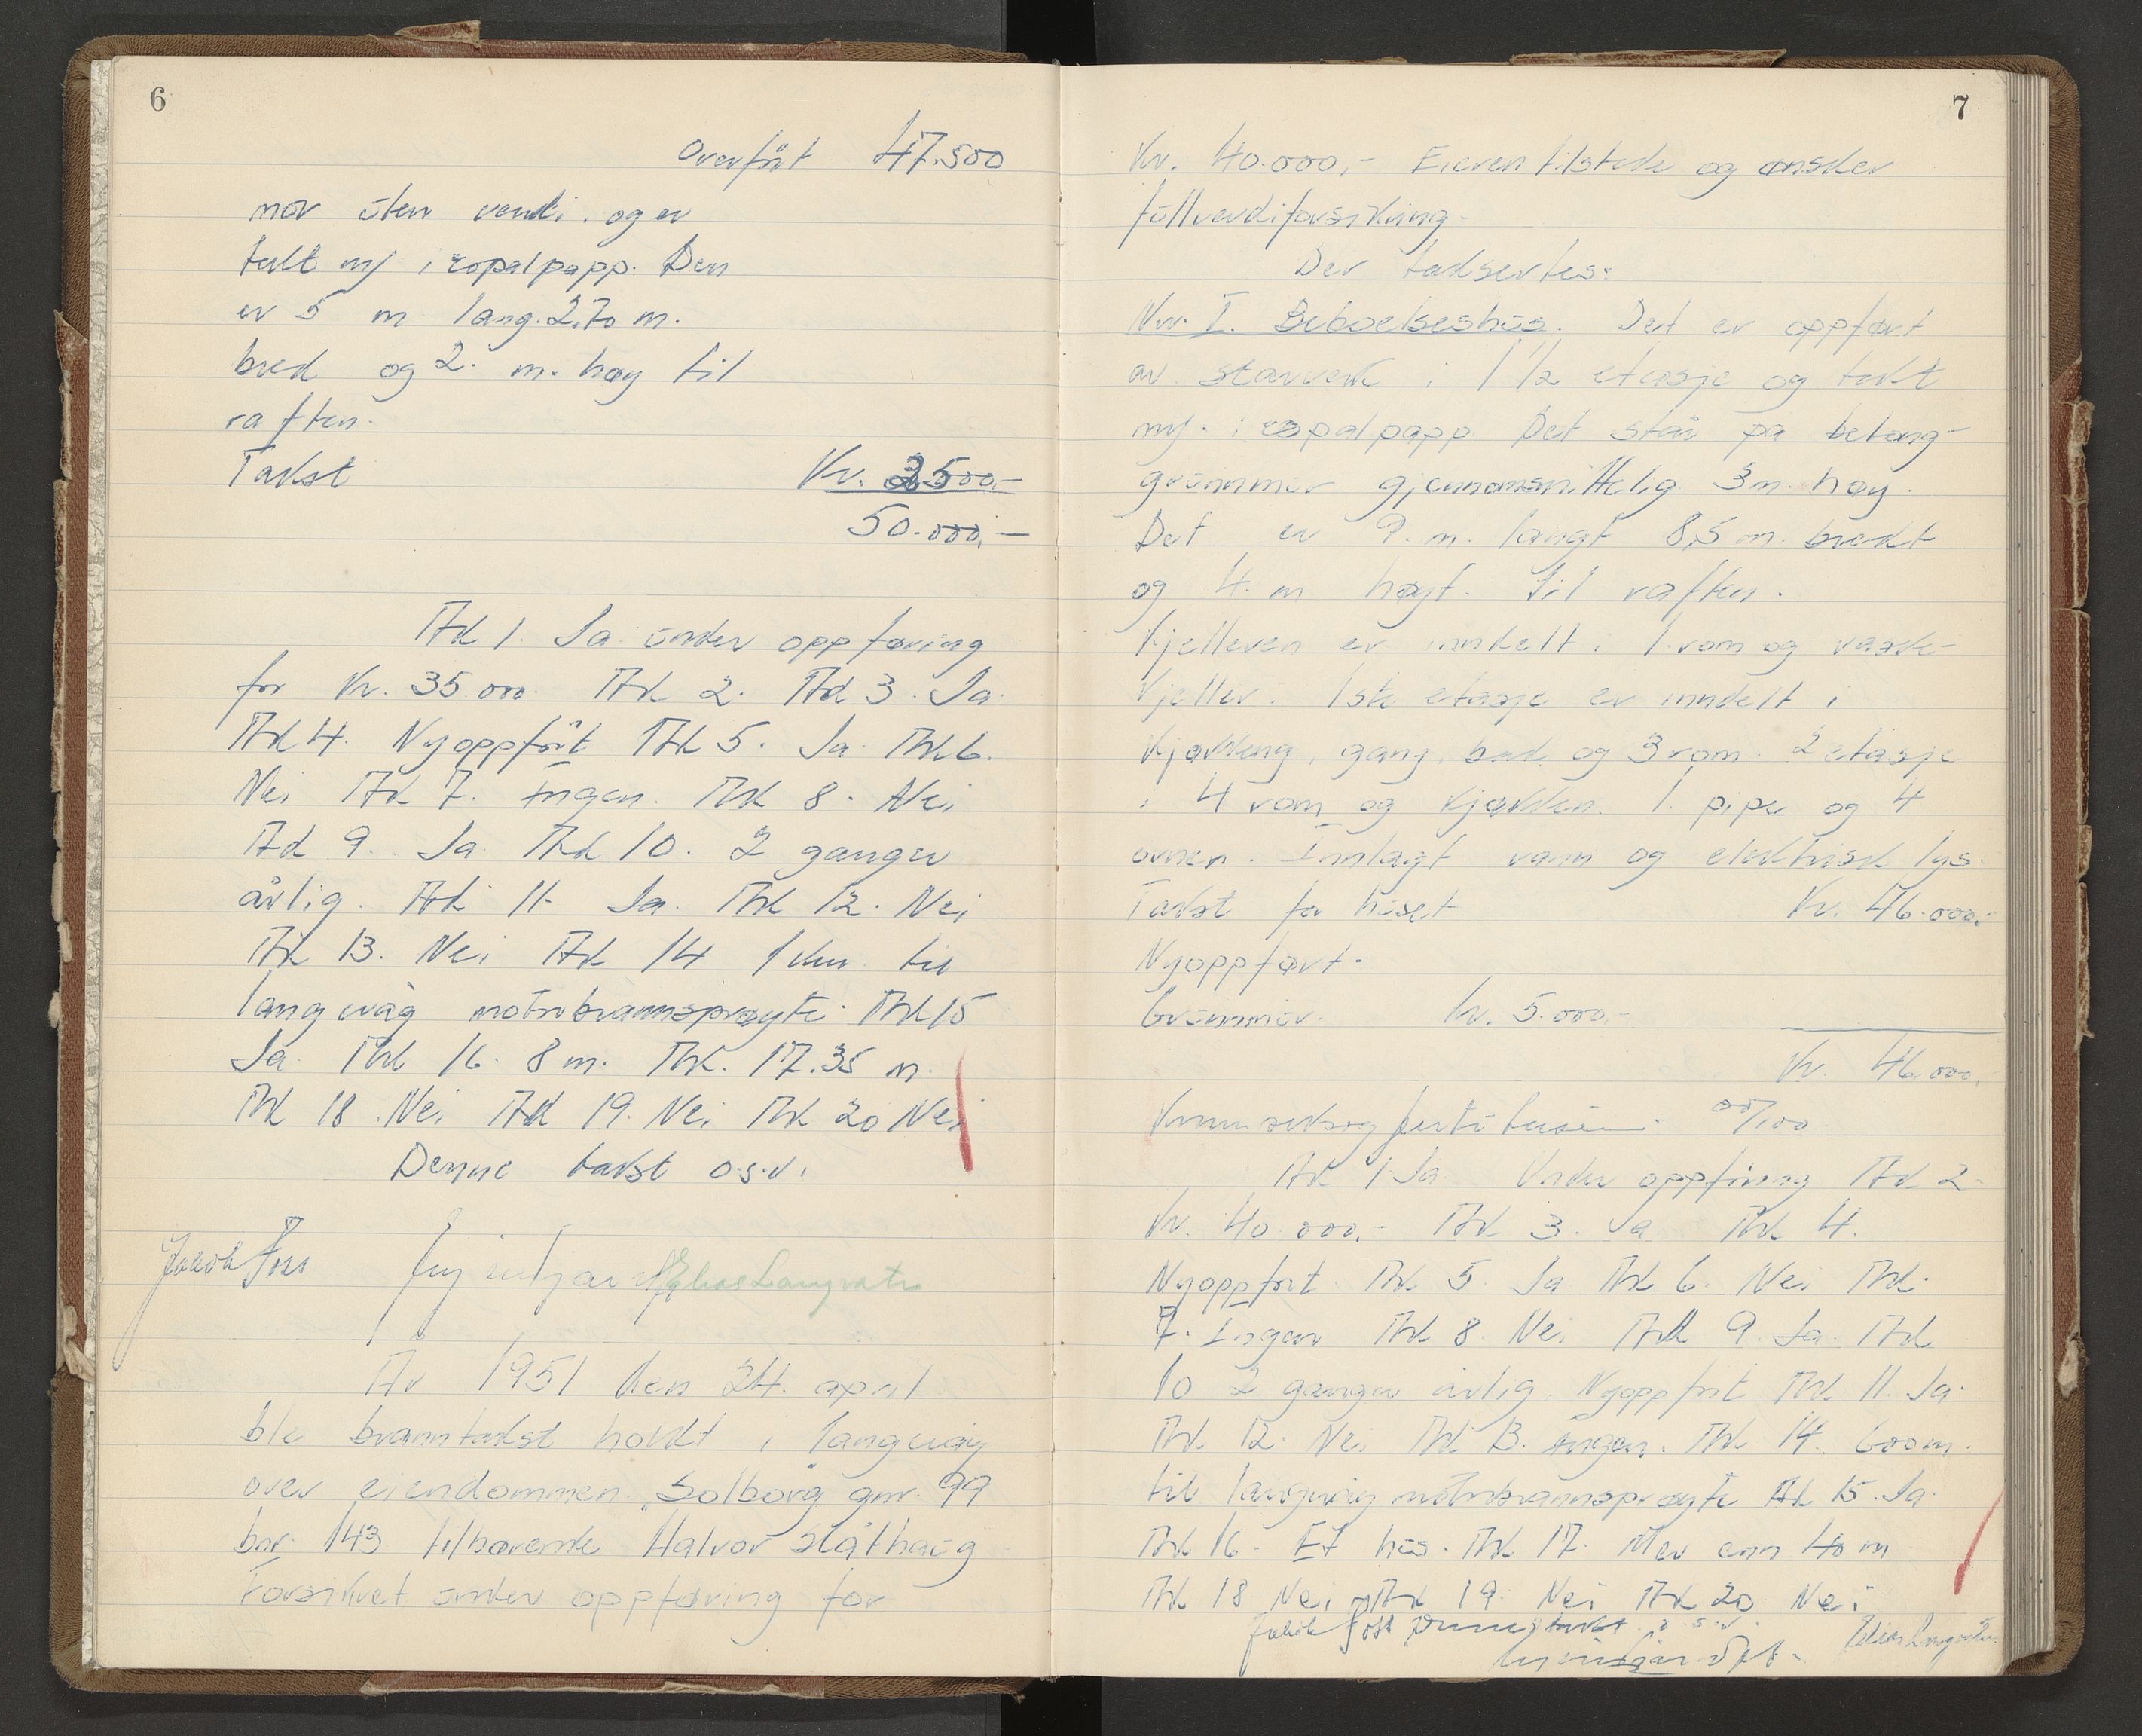 6
Overført 47.500
mur uten verdi. og er
tekt m/ icopalpapp. Den
er 5 m lang. 2.70 m.
bred og 2. m. høy til
raften.
Takst Kr. 2500,-
50.000,-
Ad 1. Ja under oppføring
for Kr. 35.000. Ad 2. Ad 3. Ja.
Ad 4. Nyoppført Ad 5. Ja. Ad 6.
Nei Ad 7. Ingen. Ad 8. Nei
Ad 9. Ja Ad 10. 2 ganger
årlig. Ad 11. Ja. Ad 12. Nei
Ad 13. Nei Ad 14 1 km til
langevåg motorbrannsprøyte. Ad 15
Ja. Ad 16. 8 m. Ad. 17. 35 m.
Ad 18. Nei Ad 19. Nei Ad 20 Nei
Denne takst o.s.v.
Jakob Foss Elias Langvatn
År 1951 den 24. april
ble branntakst holdt i langevåg
over eiendommen "Solborg" gnr. 99
bnr. 143 tilhørende Halvor Slåthaug
Forsikret under oppføring for
7
Kr. 40.000,- Eieren tilstede og ønsker
fullverdiforsikring.
Der taksertes:
Nr. I. Beboelseshus. Det er oppført
av stavverk i 1 1/2 etasje og tekt
m/. icopalpapp. Det står på betong-
grunnmur gjennomsnittelig 3 m. høy.
Det er 9. m. langt 8,5 m. bredt
og 4. m høyt. til raften.
Kjelleren er inndelt i 1 rom og vaske-
kjeller. 1ste etasje er inndelt i
kjøkken, gang, bad og 3 rom. 2 etasje
i 4 rom og kjøkken. 1 pipe og 4
ovner. Innlagt vann og elektrisk lys.
Takst for huset Kr. 46.000,-
Nyoppført.
Grunnmur. Kr. 5.000,-
Kr. 46.000,
Kronerseksogførtitusen. 00/100
Ad 1 Ja Under oppføring Ad 2
Kr. 40.000,- Ad 3. Ja Ad 4.
Nyoppført. Ad 5. Ja Ad 6. Nei Ad.
7. Ingen Ad 8. Nei Ad 9. Ja. Ad
10 2 ganger årlig. Nyoppført Ad 11. Ja.
Ad. 12. Nei Ad 13. Ingen. Ad 14. 600 m.
til langevåg motorbrannsprøyte Ad 15. Ja.
Ad 16. Et hus. Ad 17. Mer enn 40 m
Ad 18 Nei Ad 19. Nei Ad 20 Nei
Jakob Foss Denne takst o.s.v. Elias Langvatn